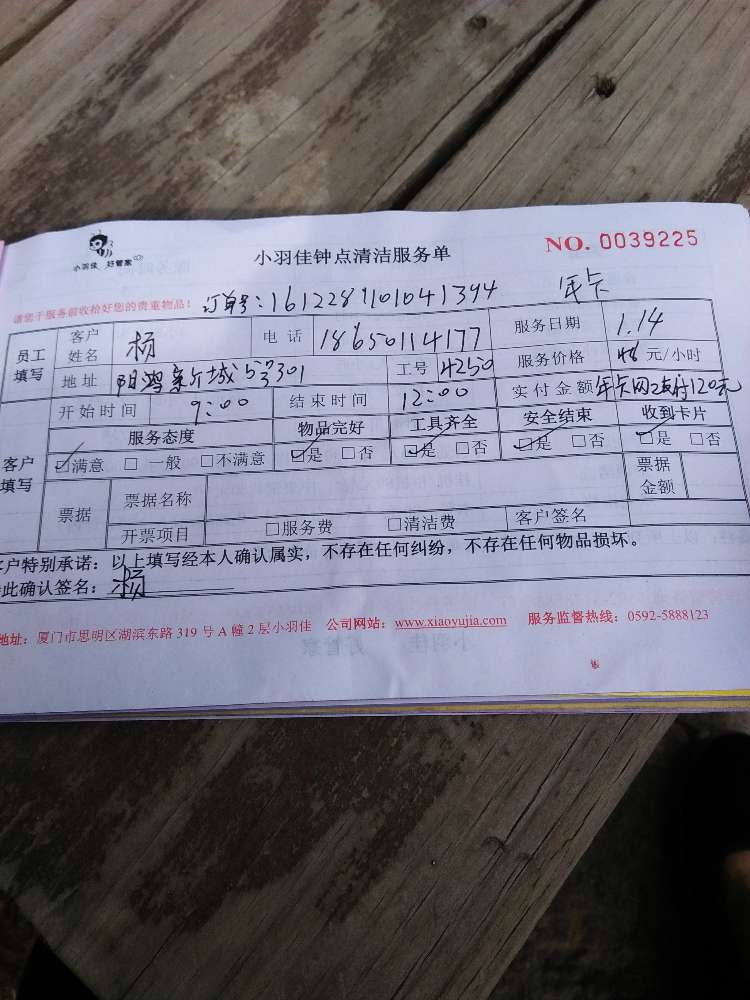 小羽佳 好管家
小羽佳钟点清洁服务单
NO. 0039225
请您于服务前收拾好您的贵重物品！ 订单号：1612289101041394 年卡
员工填写 客户姓名 杨 电话 18650114177 服务日期 1.14
地址 阳鸿新城 301 工号 4250 服务价格 元/小时
开始时间 9:00 结束时间 12:00 实付金额 年卡网支付120元
客户填写 服务态度 物品完好 工具齐全 安全结束 收到卡片
☑满意 □一般 □不满意 ☑是 □否 ☑是 □否 ☑是 □否 ☑是 □否
票据 票据名称 票据金额
开票项目 □服务费 □清洁费 客户签名
客户特别承诺：以上填写经本人确认属实，不存在任何纠纷，不存在任何物品损坏。
此确认签名：杨
地址：厦门市思明区湖滨东路 319 号 A 幢 2 层小羽佳 公司网站：www.xiaoyujia.com 服务监督热线：0592-5888123